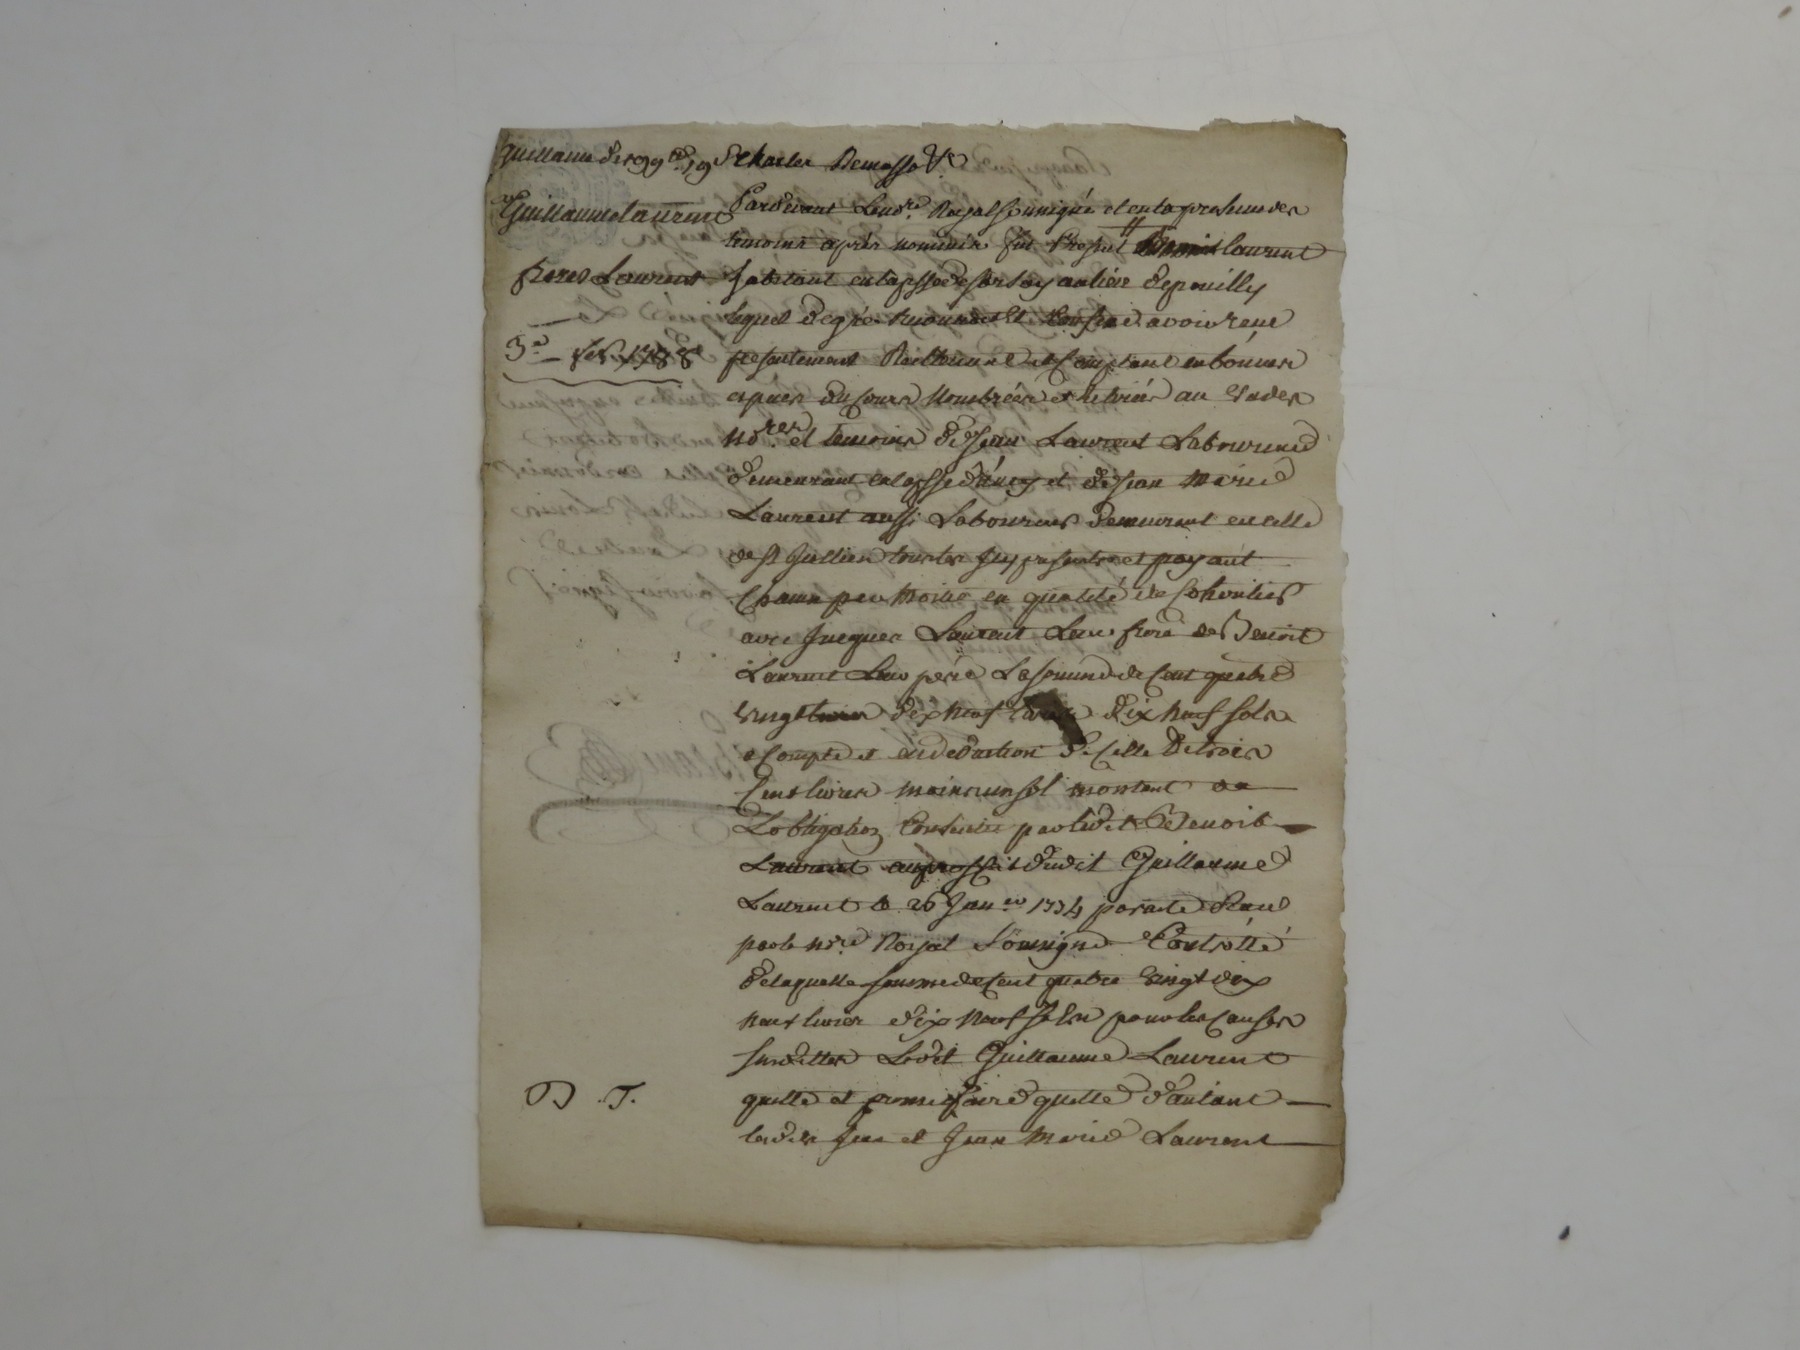 Guillaume de 199 ₶ 19 s Charles Demasso
Guillaume Laurent
freres Laurent
3e fer. 1788
Pardevant Le no.re Royal soussigné et en la presence des
temoins après nommés fut Present Benoit laurent
habitant en la psse de sarsay au lieu de pouilly
lequel de gré a reconnu et Confessé avoir reçu
presentement Reellement et Comptant en bonnes
espèces du Cours Nombrées et delivrées au vu des
no.res et temoins de Jean Laurent Laboureur
demeurant en la psse et de jean Marie
Laurent aussi Laboureur demeurant en celle
de St Jullien tous les Icy presents et payant
Chacun par moitié en qualité de Coheritiers
avec Jacques Laurent Leur frere de Benoit
Laurent Leur père La somme de Cent quatre
vingt dix Neuf Livres dix Neuf sols
a Compte et en deduction de Celle De trois
Cent livres moins un sol montant de
L'obligation Consentie par ledit Benoit
Laurent au proffit dudit Guillaume
Laurent le 26 Jan.er 1774 par acte Recu
par le no.re Royal soussigné Controllé
de laquelle somme de Cent quatre vingt dix
neuf livres dix Neuf sols pour les Causes
susdittes Ledit Guillaume Laurent
quitte et promet faire quitte d'autant
lesdits Jean et Jean Marie Laurent